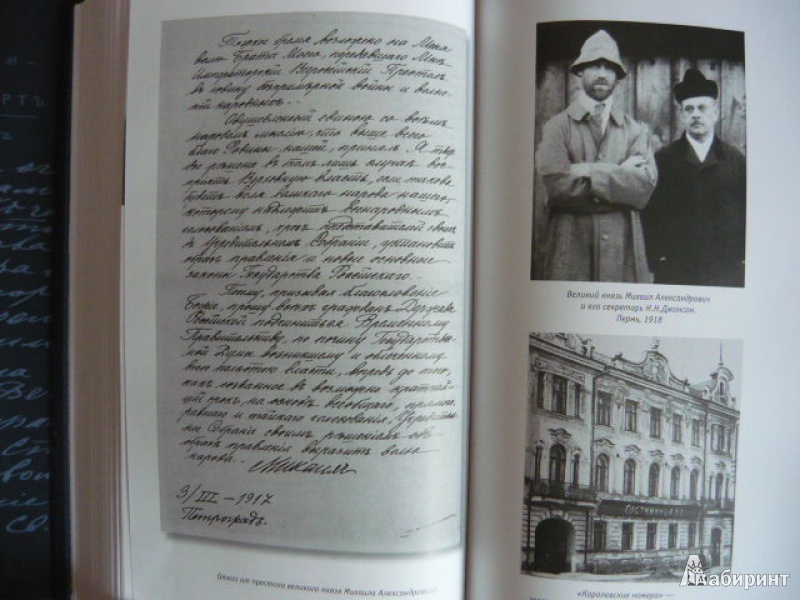 Тяжкое бремя возложено на Меня
волею Брата Моего, передавшего Мнѣ
Императорскій Всероссійскій Престолъ
въ годину безпримѣрной войны и волне-
ній народныхъ.
Одушевленный единою со всѣмъ
народомъ мыслію, что выше всего
благо Родины нашей, принялъ Я твер-
дое рѣшеніе въ томъ лишь случаѣ вос-
пріять Верховную власть, если такова
будетъ воля великаго народа нашего,
которому надлежитъ всенароднымъ
голосованіемъ, чрезъ представителей своихъ
въ Учредительномъ Собраніи, установить
образъ правленія и новые основные
законы Государства Россійскаго.
Посему, призывая благословеніе
Божіе, прошу всѣхъ гражданъ Державы
Россійской подчиниться Временному
Правительству, по почину Государствен-
ной Думы возникшему и облеченному
всею полнотою власти, впредь до того,
какъ созванное въ возможно кратчай-
шій срокъ, на основѣ всеобщаго, прямого,
равнаго и тайнаго голосованія, Учредитель-
ное Собраніе своимъ рѣшеніемъ объ
образѣ правленія выразитъ волю
народа.
Михаилъ
3/III — 1917
Петроградъ.
Отказ от престола великого князя Михаила Александровича
Великий князь Михаил Александрович
и его секретарь Н.Н.Джонсон.
Пермь, 1918
ГОСТИННИЦА
«Королевские номера» —
Лабиринт.ру